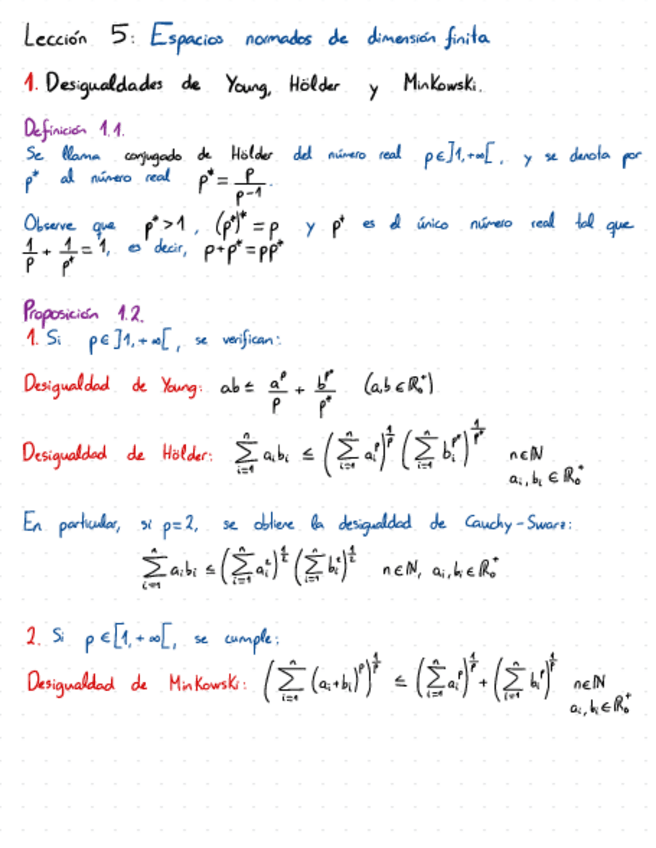 Lección 5: Espacios normados de dimensión finita
1. Desigualdades de Young, Hölder y Minkowski.
Definición 1.1.
Se llama conjugado de Hölder del número real p∈]1,+∞[, y se denota por
p* al número real p* = p/(p-1).
Observe que p*>1, (p*)* = p y p* es el único número real tal que
1/p + 1/p* = 1, es decir, p+p* = pp*
Proposición 1.2.
1. Si p∈]1,+∞[, se verifican:
Desigualdad de Young: ab ≤ a^p/p + b^p*/p* (a,b∈ℝ₀⁺)
Desigualdad de Hölder: ∑_{i=1}^n a_i b_i ≤ (∑_{i=1}^n a_i^p)^{1/p} (∑_{i=1}^n b_i^{p*})^{1/p*} n∈ℕ
a_i, b_i ∈ ℝ₀⁺
En particular, si p=2, se obtiene la desigualdad de Cauchy-Swarz:
∑_{i=1}^n a_i b_i ≤ (∑_{i=1}^n a_i^2)^{1/2} (∑_{i=1}^n b_i^2)^{1/2} n∈ℕ, a_i, b_i ∈ ℝ₀⁺
2. Si p∈[1,+∞[, se cumple:
Desigualdad de Minkowski: (∑_{i=1}^n (a_i+b_i)^p)^{1/p} ≤ (∑_{i=1}^n a_i^p)^{1/p} + (∑_{i=1}^n b_i^p)^{1/p} n∈ℕ
a_i, b_i ∈ ℝ₀⁺